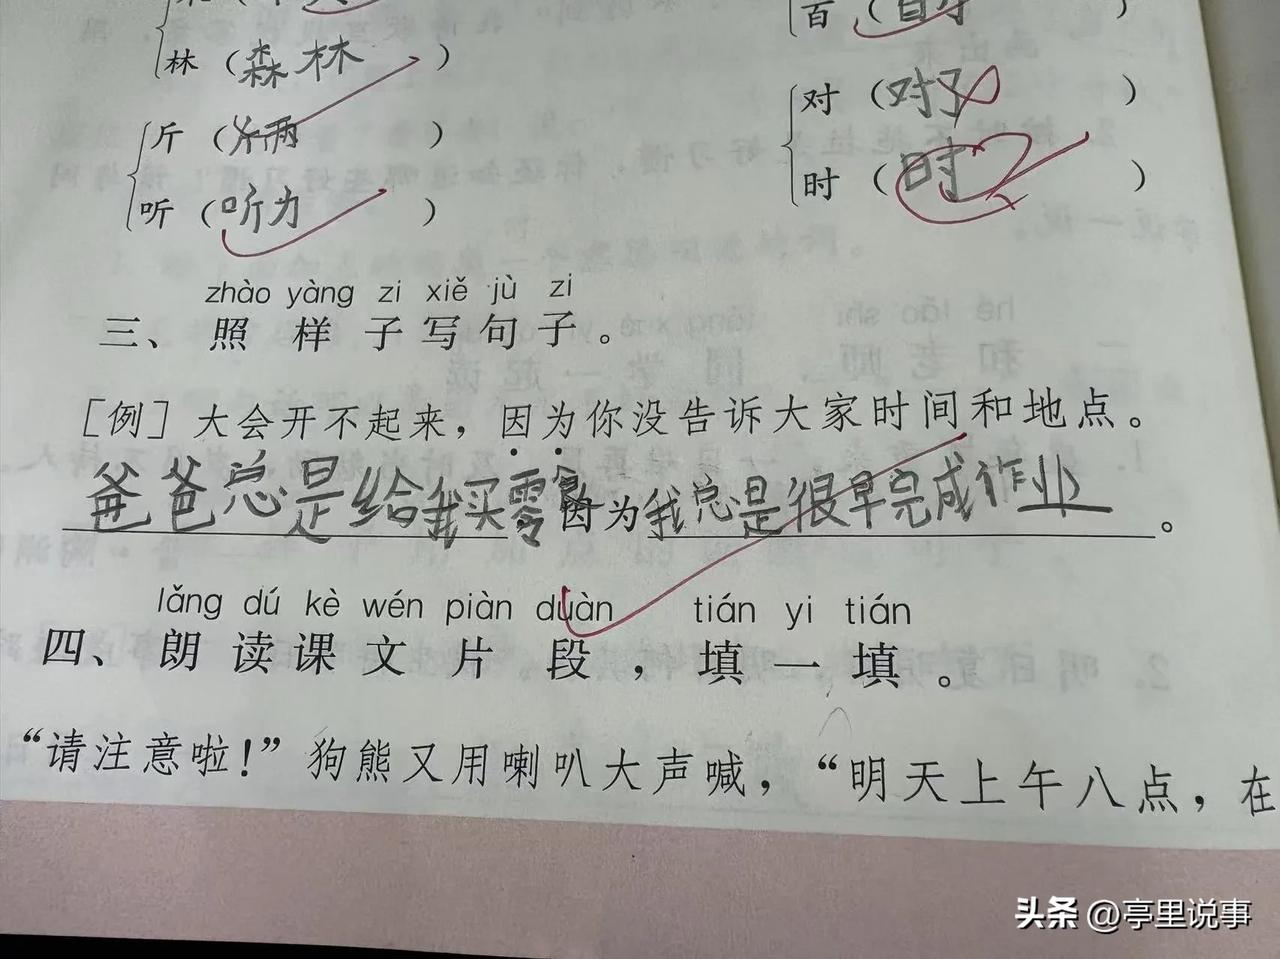 林（森林）
百（
斤（斤两）
听（听力）
对（对了）
时（时
zhào yàng zi xiě jù zi
三、照样子写句子。
［例］大会开不起来，因为你没告诉大家时间和地点。
爸爸总是给我买零食因为我总是很早完成作业。
lǎng dú kè wén piàn duàn tián yi tián
四、朗读课文片段，填一填。
“请注意啦！”狗熊又用喇叭大声喊，“明天上午八点，在
头条 @亭里说事